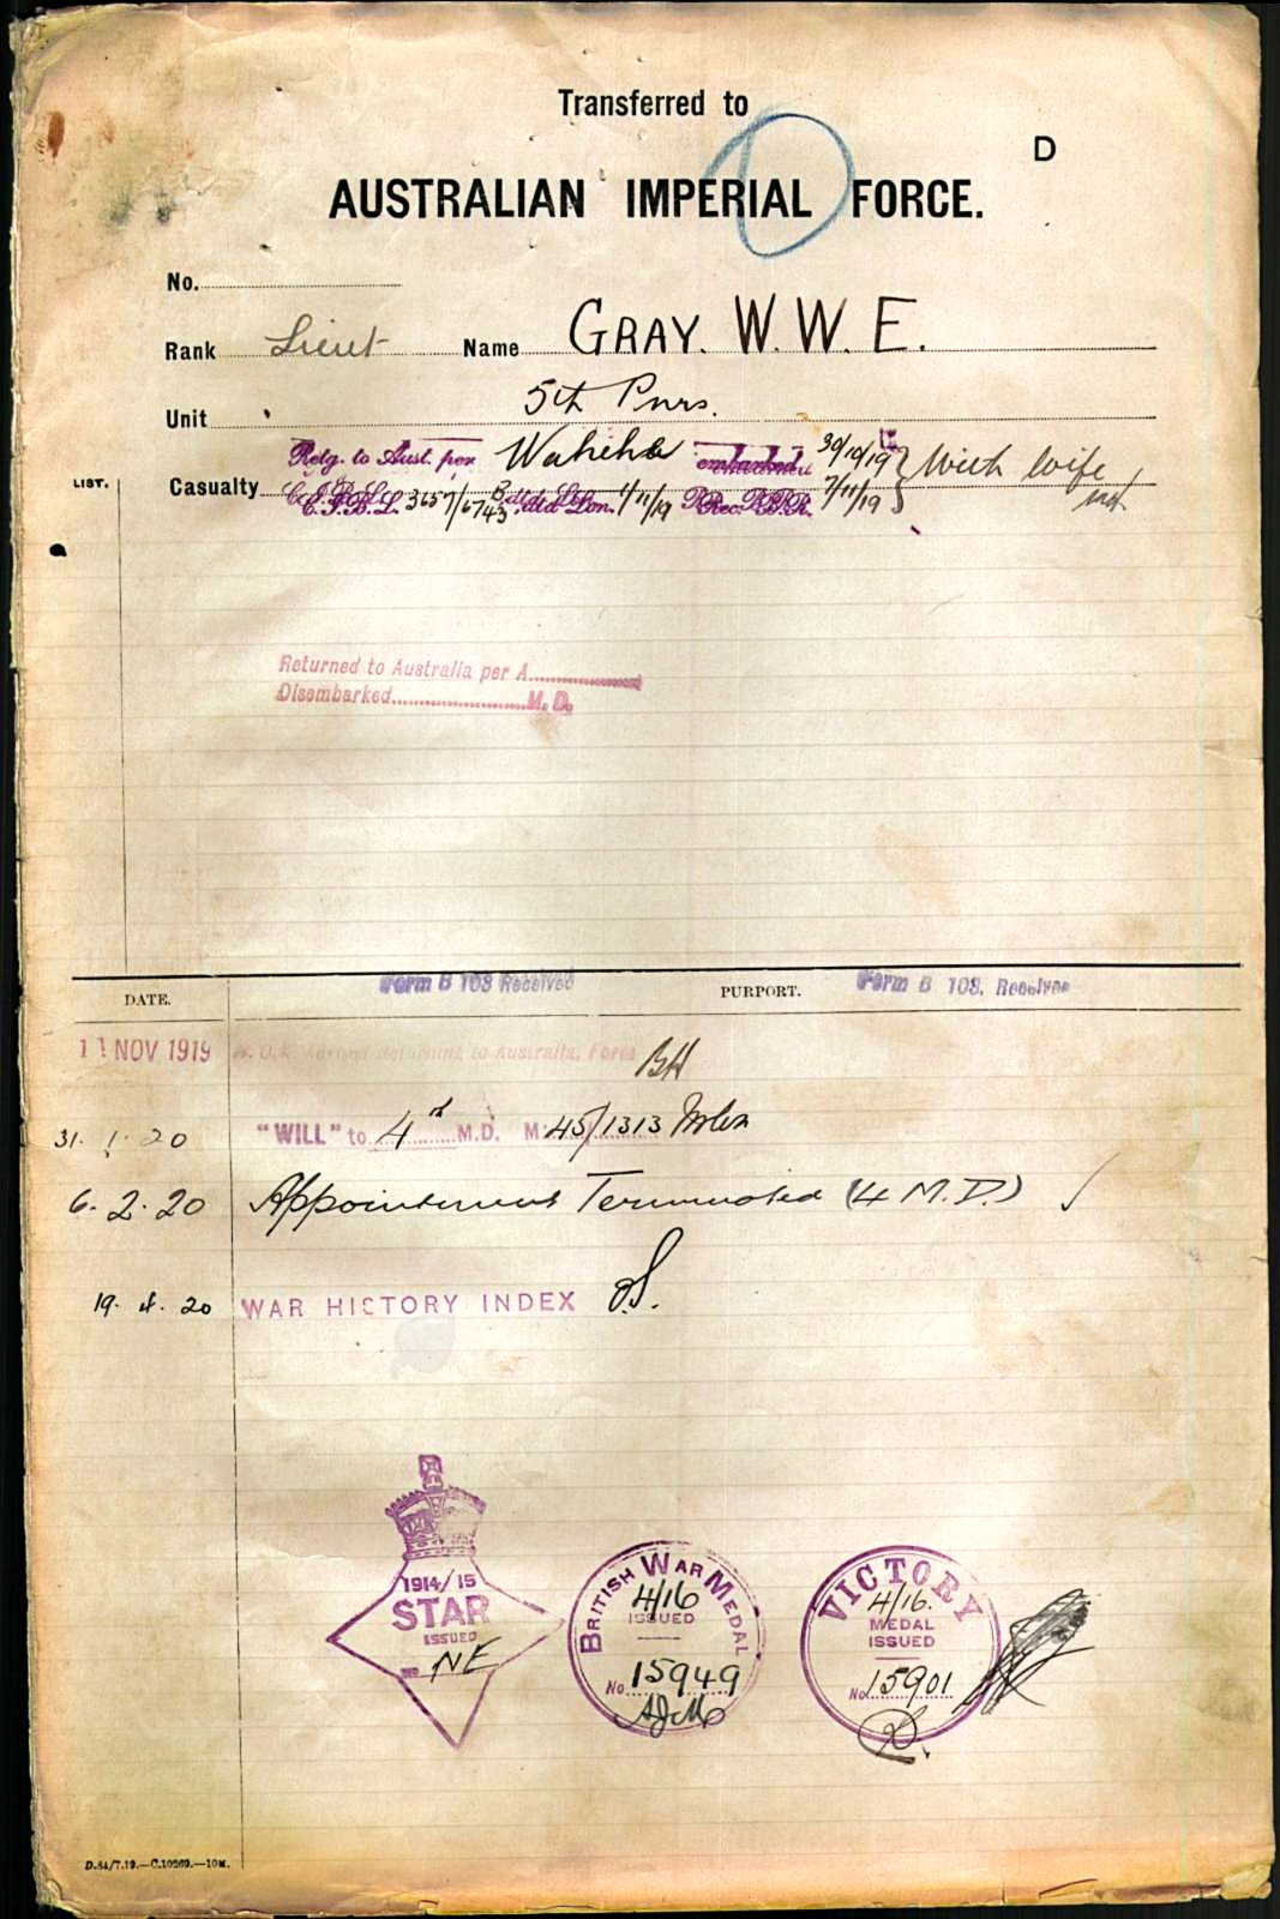 Transferred to
D
AUSTRALIAN IMPERIAL FORCE.
No.
Rank Lieut Name GRAY. W. W. E.
Unit 5th Pnrs.
Retg. to Aust. per Wahehe embarked 30/10/19 } With wife
LIST. Casualty 3657/6743 dtd Lon. 1/11/19 Rec. 7/11/19
Returned to Australia per A
Disembarked M. D.
Form B 103 Received Form B 103. Received
DATE. PURPORT.
11 NOV 1919 Returning to Australia, Form BH
31. 1. 20 "WILL" to 4th M.D. M 45/1313
6. 2. 20 Appointment Terminated (4 M.D.)
19. 4. 20 WAR HISTORY INDEX
1914/15
STAR
ISSUED
NO NE
BRITISH WAR MEDAL
4/16
ISSUED
No. 15949
VICTORY
4/16.
MEDAL
ISSUED
No. 15901
D.84/7.19.—C.10569.—10M.